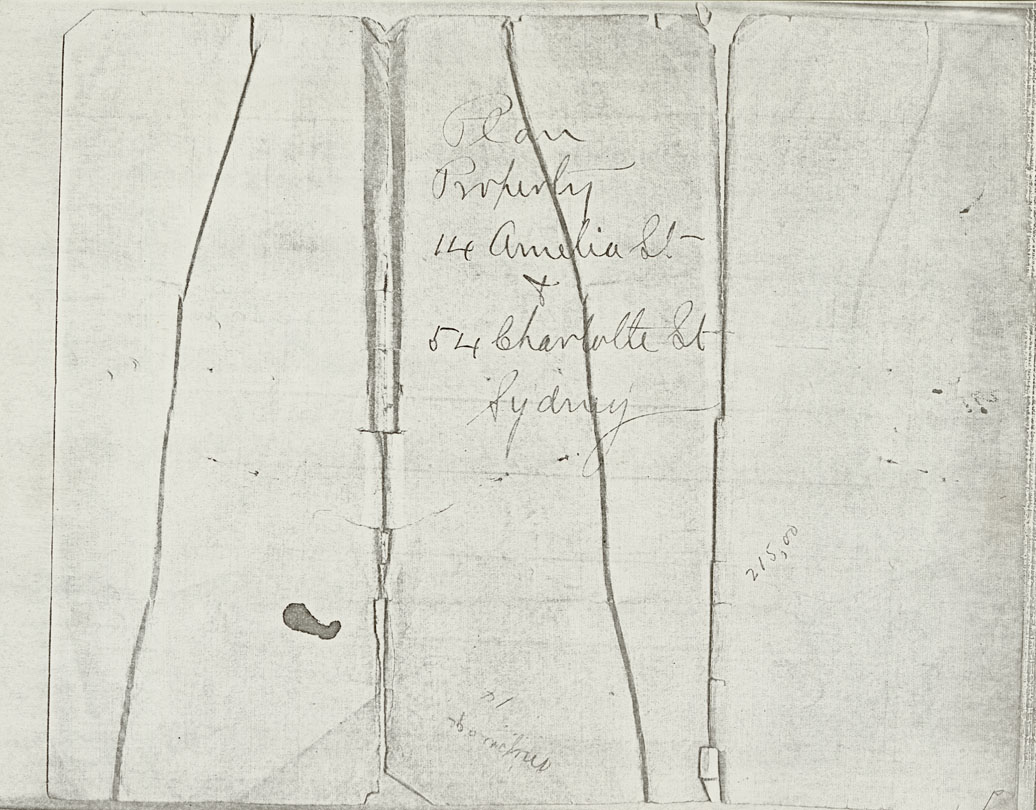 Plan
Property
14 Amelia St
&
54 Charlotte St
Sydney
215,00